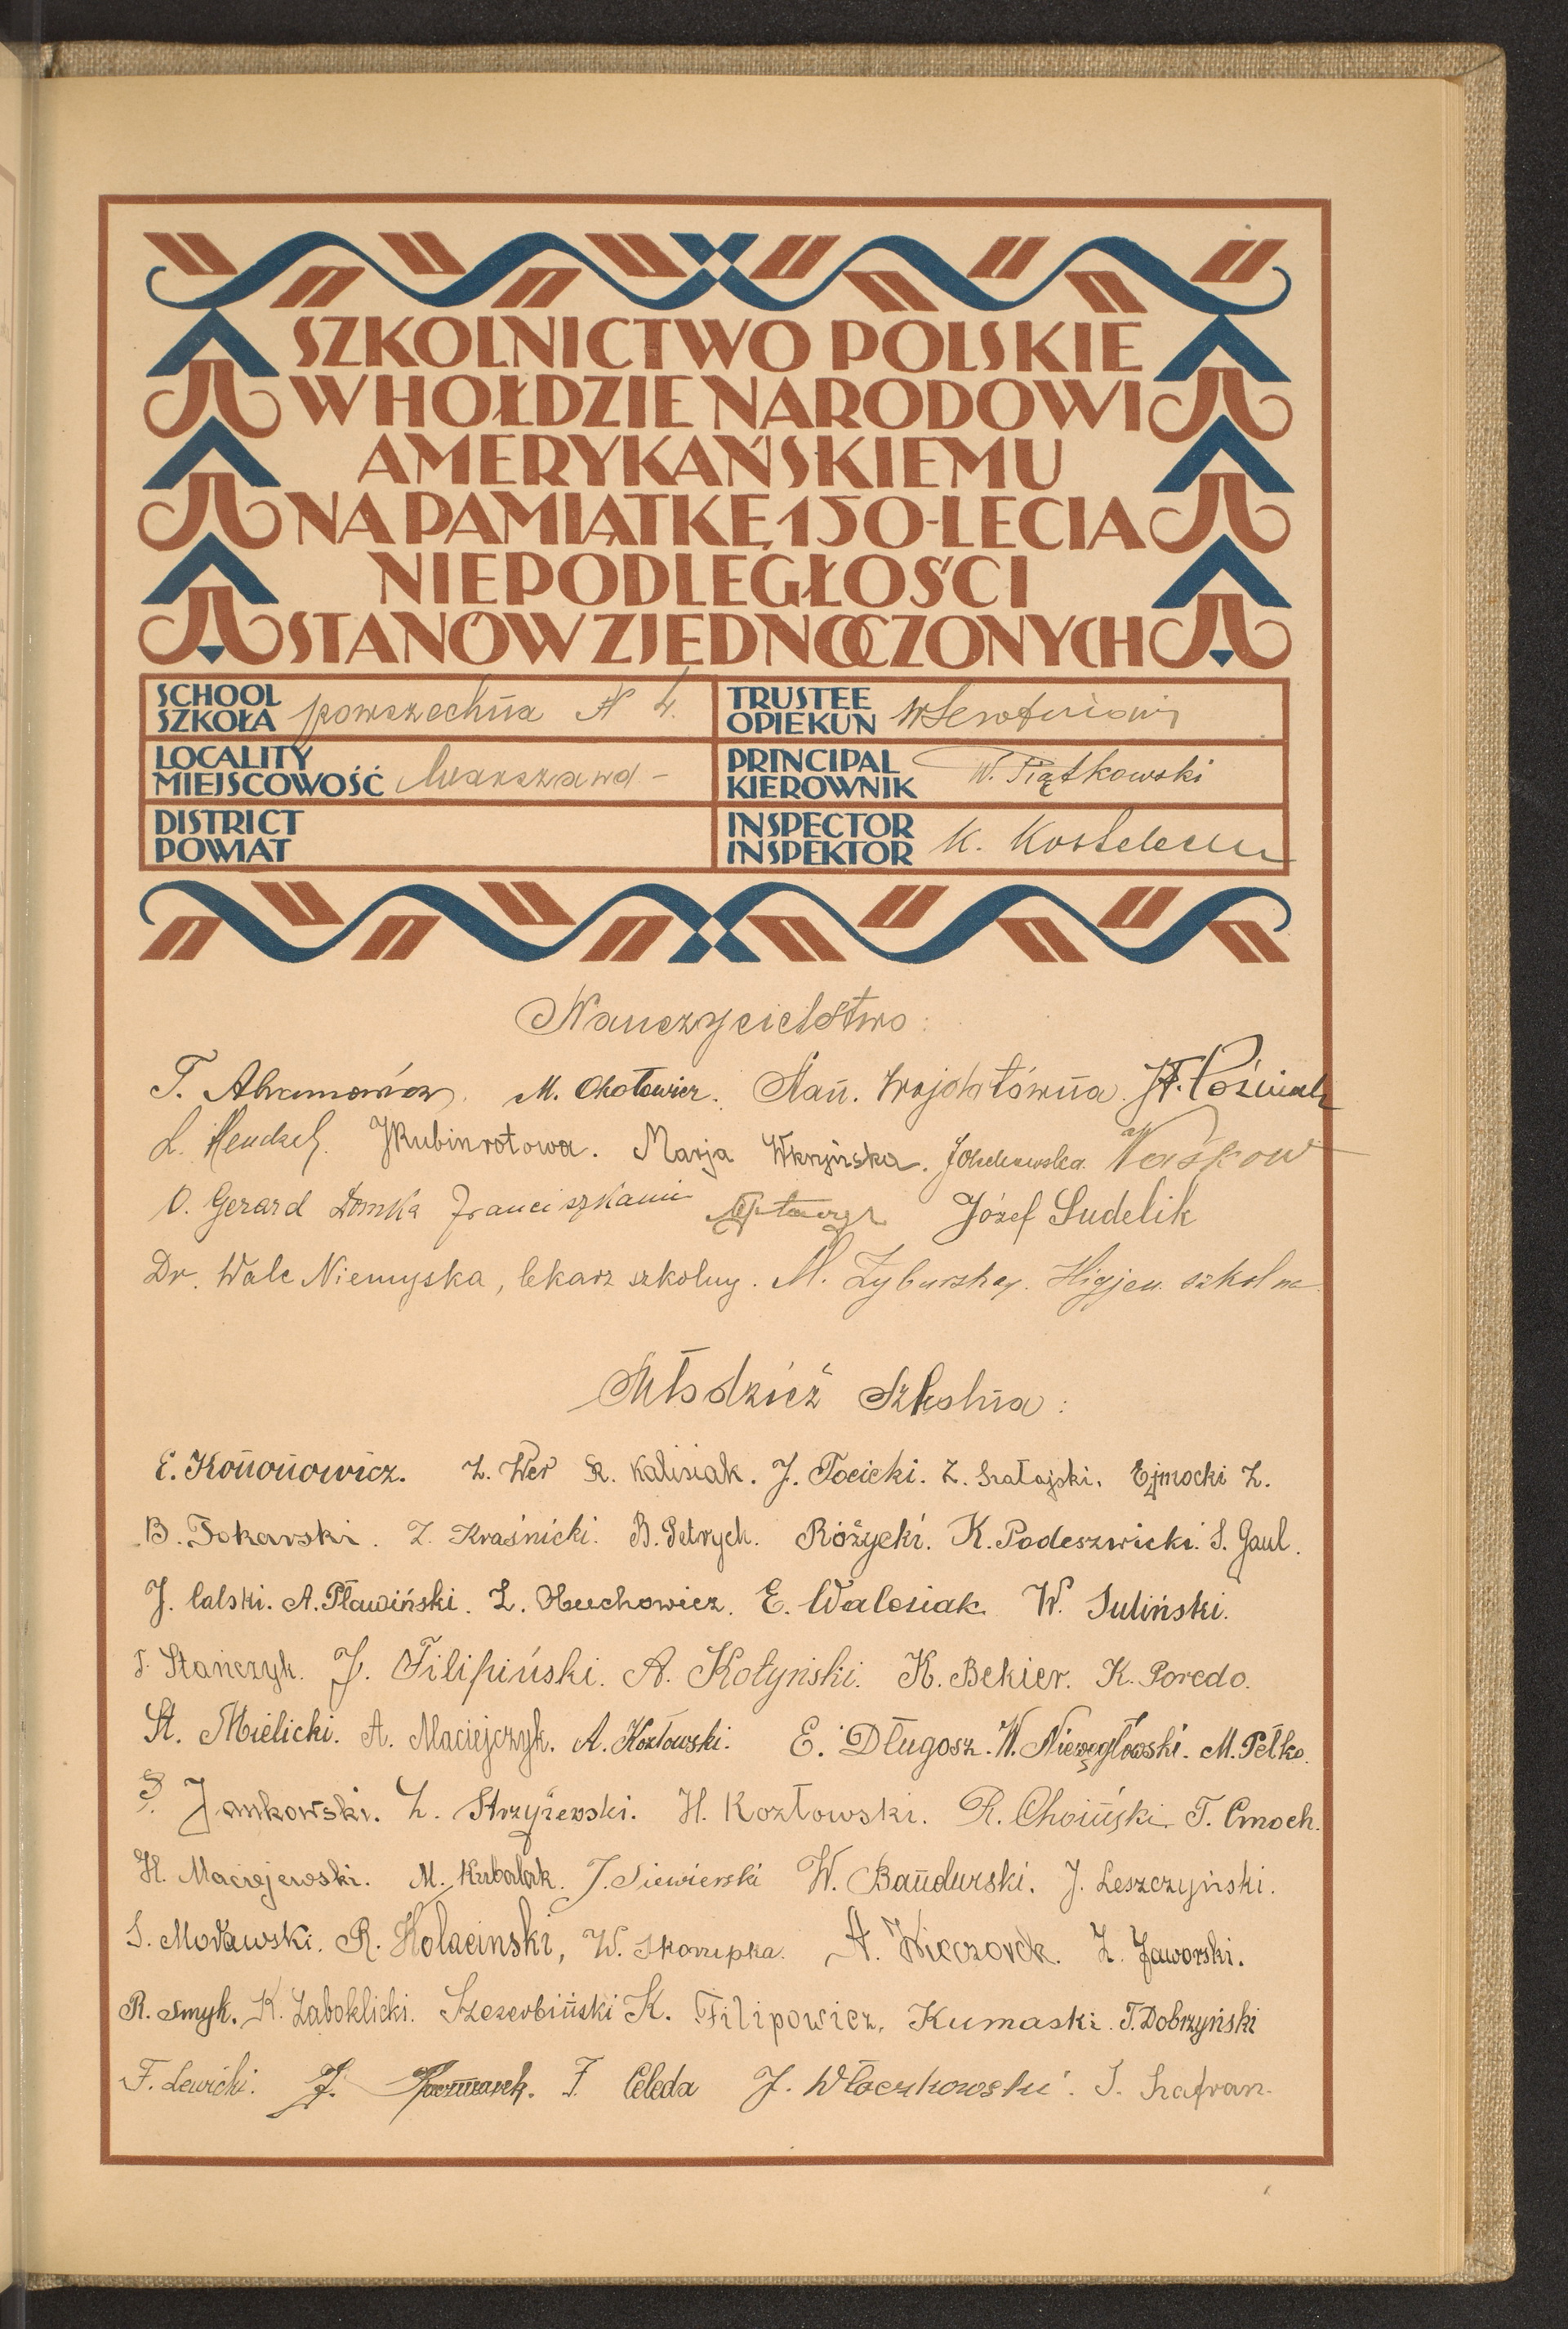 SZKOLNICTWO POLSKIE
W HOŁDZIE NARODOWI
AMERYKAŃSKIEMU
NA PAMIĄTKĘ 150-LECIA
NIEPODLEGŁOŚCI
STANÓW ZJEDNOCZONYCH
SCHOOL
SZKOŁA powszechna N 4.
TRUSTEE
OPIEKUN
LOCALITY
MIEJSCOWOŚĆ Warszawa -
PRINCIPAL
KIEROWNIK W. Piątkowski
DISTRICT
POWIAT
INSPECTOR
INSPEKTOR K.
Nauczycielstwo:
T. Abramowicz. M. Okołowicz. Stan. Wojdatówna.
L. Hendzel. JRubinrotowa. Marja Wkryńska.
O. Gerard Domka Franciszkanin Józef Sudelik
Dr. Wale Niemyska, lekarz szkolny. M. Zyburska. Higjen. szkolna
Młodzież Szkolna:
E. Kononowicz. Z. Wer R. Kalisiak. J. Tocicki. Z. Szałajski. Ejmocki Z.
B. Tokarski. Z. Kraśnicki. B. Petrych. Różycki. K. Podeszwicki. S. Gaul.
J. Calski. A. Pławiński. L. Obuchowicz. E. Walesiak W. Suliński.
S. Stańczyk. J. Filipiński. A. Kotyński. K. Bekier. K. Poredo.
St. Mielicki. A. Maciejczyk. A. Kozłowski. E. Długosz. W. Niewęgłowski. M. Pełko.
S. Jankowski. L. Strzyżewski. H. Kozłowski. R. Choiński. T. Cmoch.
H. Maciejewski. M. Kubalak. J. Siewierski W. Bandurski. J. Leszczyński.
S. Morawski. R. Kolacinski, W. Skorupka. A. Wieczorek. Z. Jaworski.
R. Smyk. K. Zaboklicki. Szczerbiński K. Filipowicz. Kumaski. T. Dobrzyński
F. Lewicki. J. Kaczmarek. F. Celeda J. Włoczkowski. S. Szafran.